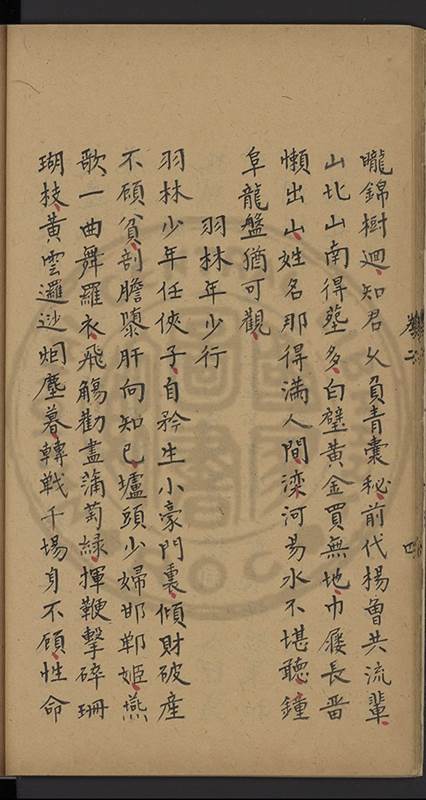 曨錦樹迴知君久負青囊秘前代楊魯共流輩
山北山南得壟多白璧黃金買無地巾屨長留
懶出山姓名那得滿人間滦河易水不堪聽鐘
阜龍盤猶可觀
羽林年少行
羽林少年任俠子自矜生小豪門裏傾財破産
不顧貧剖膽隳肝向知已壚頭少婦邯鄲姬燕
歌一曲舞羅衣飛觴勸盡蒲萄緑揮鞭擊碎珊
瑚枝黃雲邏逤烟塵暮轉戰千場身不顧性命
卷二
四